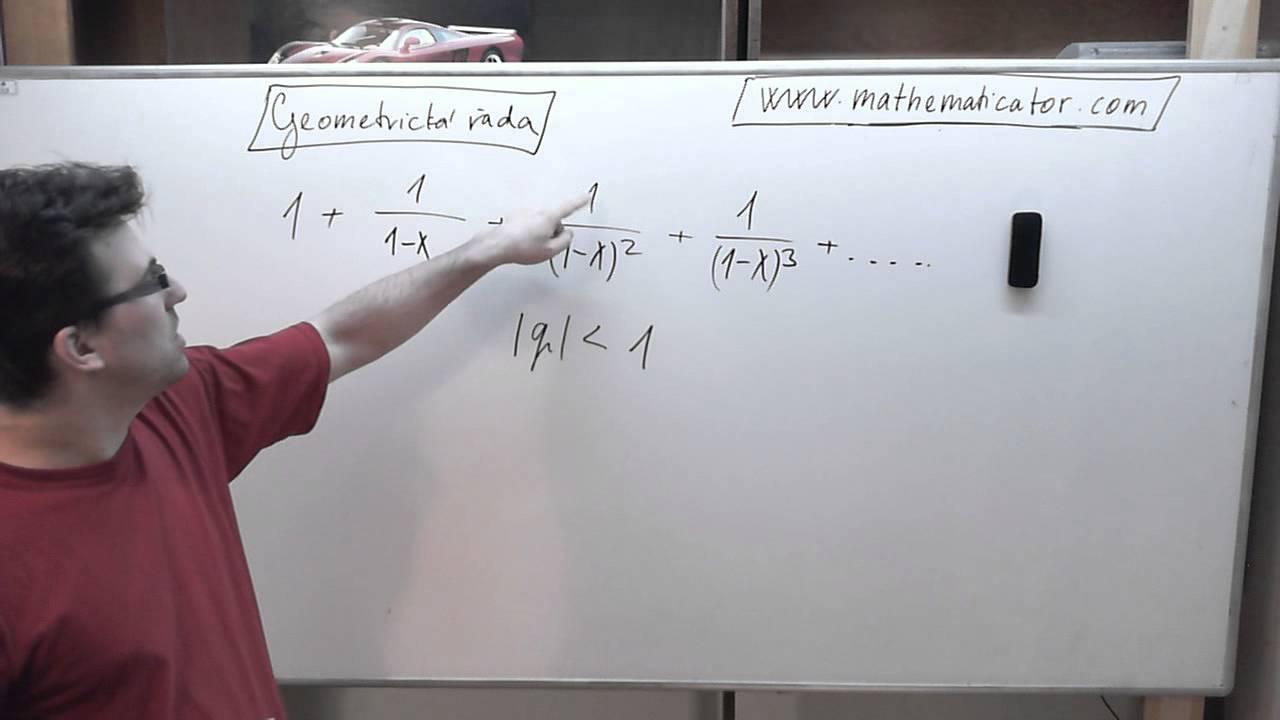 Geometrická řada
www.mathematicator.com
1 + 1/(1-x) + 1/(1-x)² + 1/(1-x)³ + .....
|q| < 1